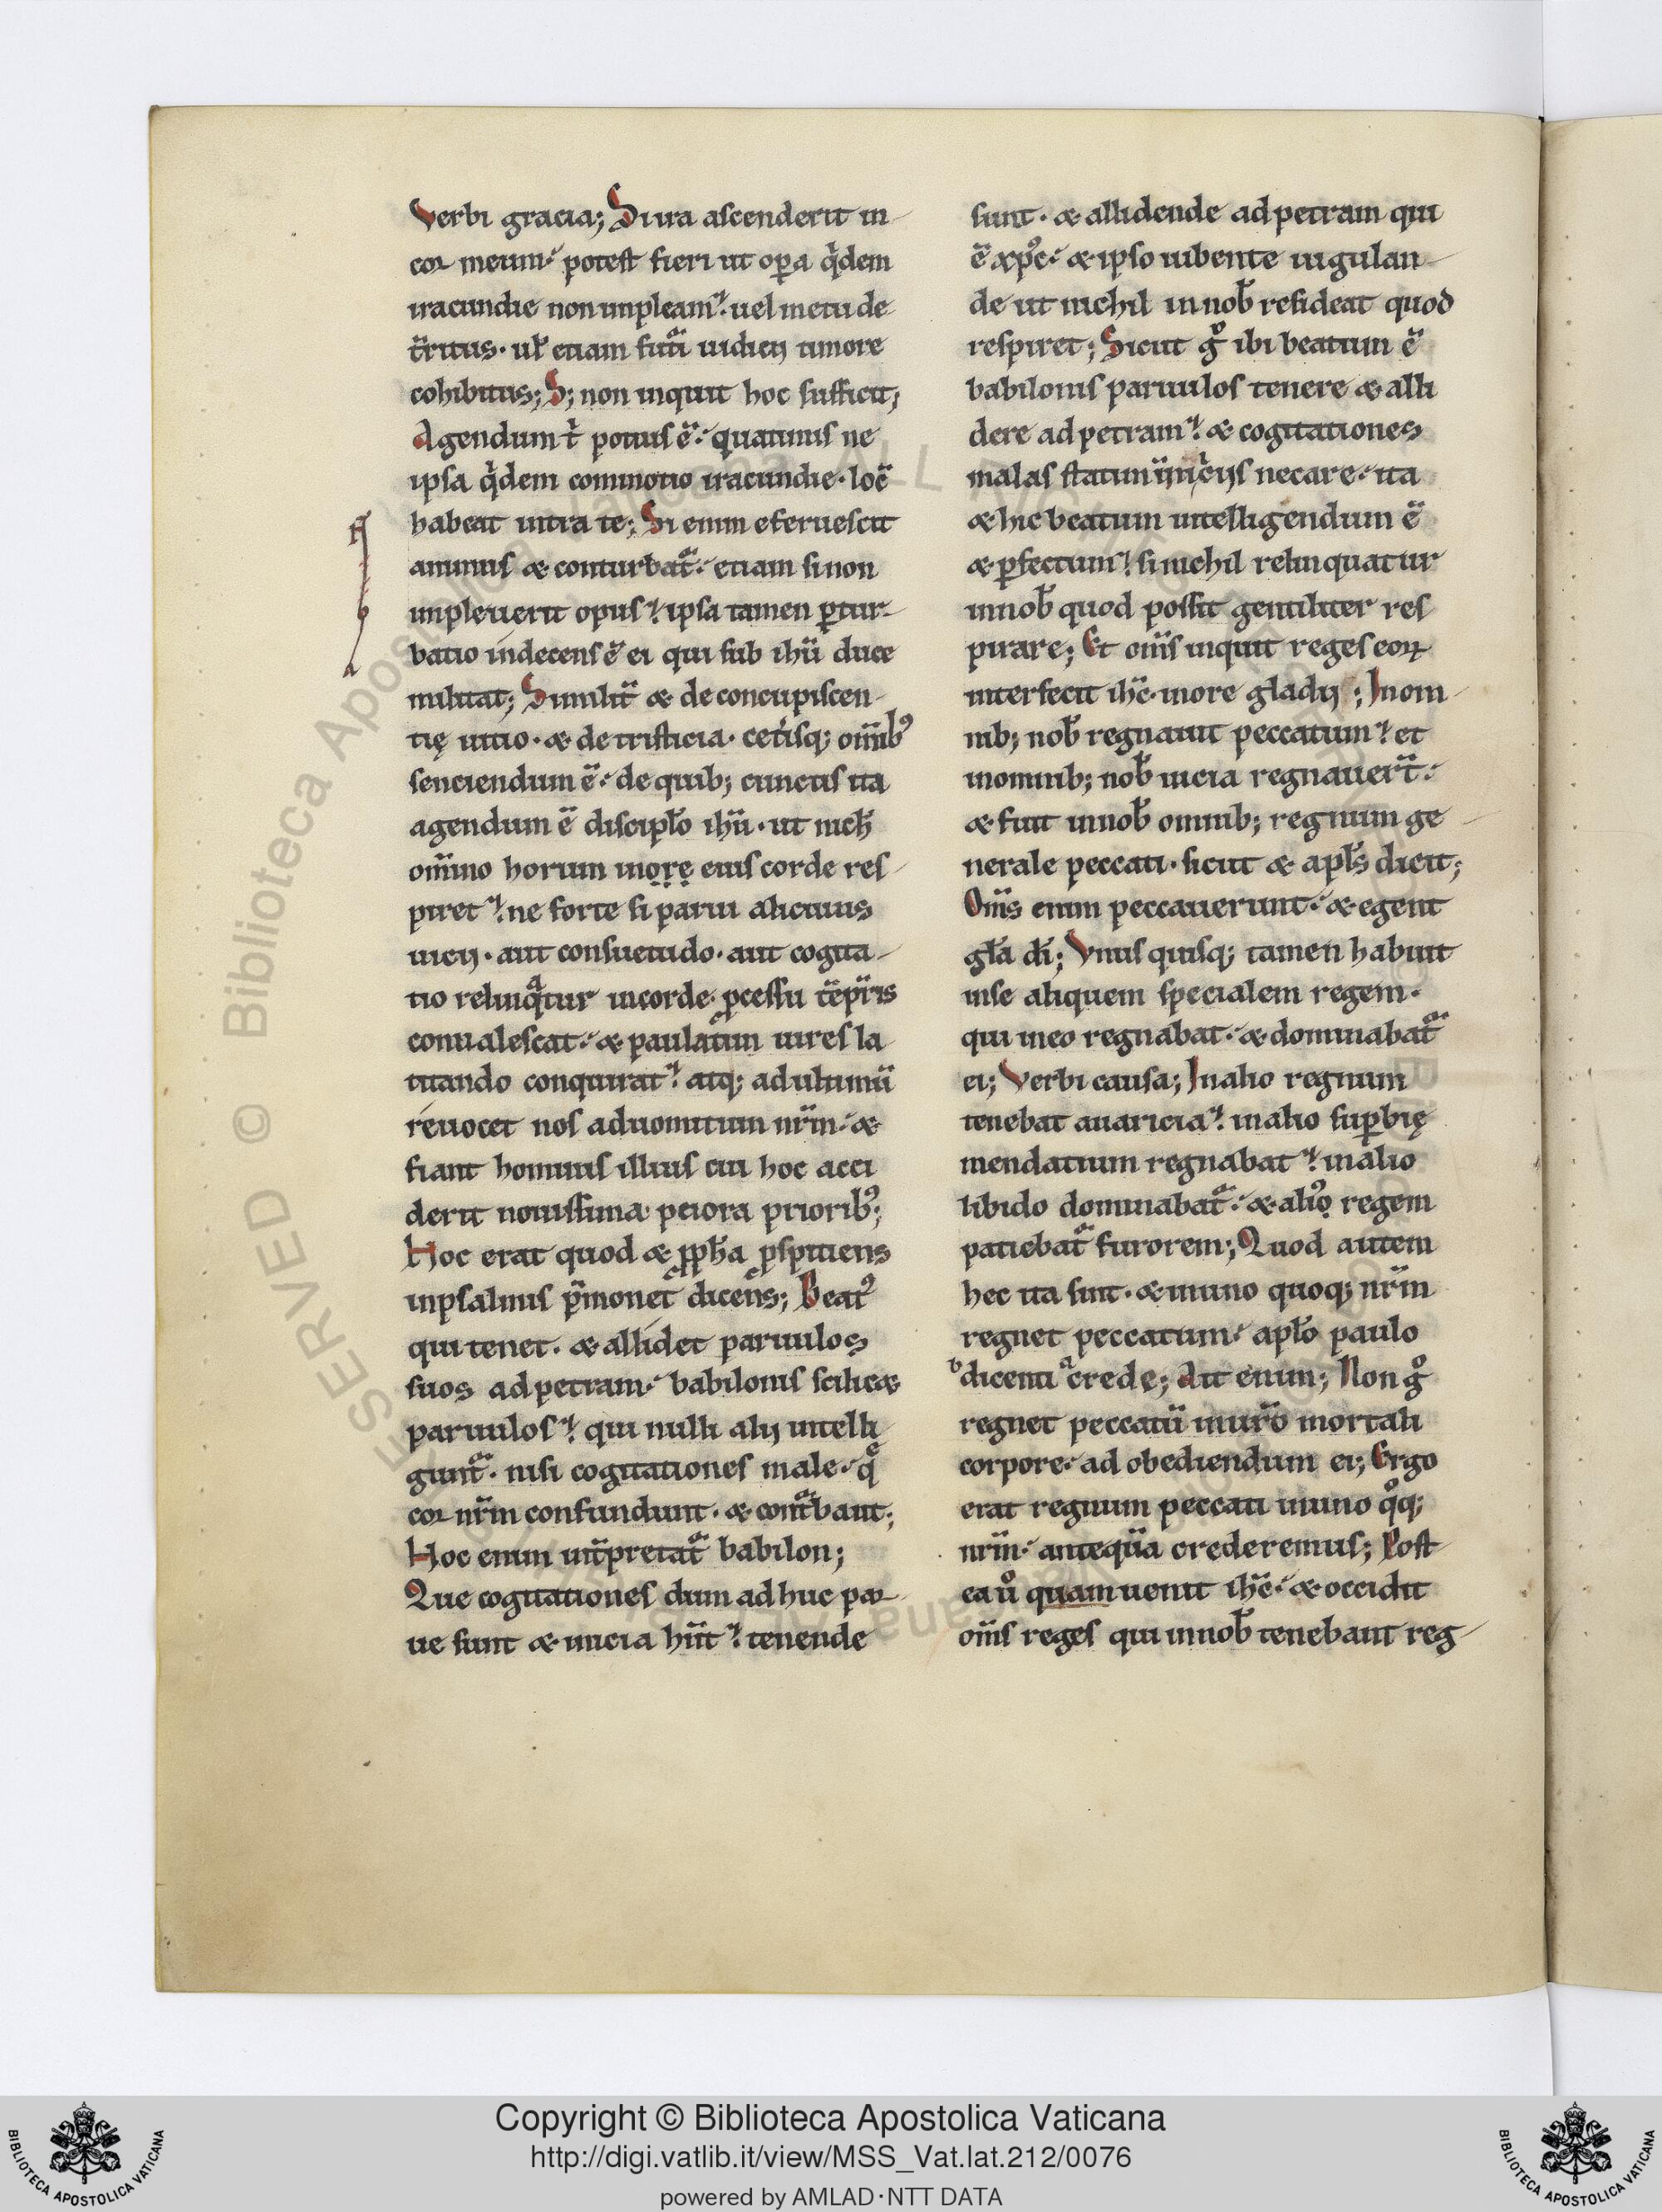 Verbi gracia; Si ira ascenderit in
cor meum. potest fieri ut opa q̇dem
iracundie non impleam. uel metu de
t̄ritus. ul̄ etiam futi͛ iudicij timore
cohibitus; S; non inquit hoc sufficit;
Agendum t̄ potius ē. quatinus ne
ipsa q̇dem commotio iracundie. locū
habeat intra te; Si enim eferuescit
animus & conturbat͛. etiam si non
impleuerit opus. ipsa tamen ꝑtur-
batio indecens ē ei qui sub ihū duce
militat; Similit̄ & de concupiscen-
tię uitio. & de tristicia. cet̄isq; om̄ib᾿
senciendum ē. de quib; cunctis ita
agendum ē discipl̄o ihū. ut nich̄
om̄ino horum inore eius corde res-
piret. ne forte si parui alicuius
uicij. aut consuetudo. aut cogita-
tio relinq͛tur in corde. ꝓcessu tēp̄ris
conualescat. & paulatim uires la-
titando conquirat. atq; ad ultimū
reuocet nos ad uomitum nr̄m. &
fiant hominis illius cui hoc acci
derit nouissima peiora priorib᾿;
Hoc erat quod & ꝓph̄a ꝓspitiens
in psalmis p̄monet dicens; Beat᾿
qui tenet. & allidet paruulos
suos ad petram. babilonis scilic&
paruulos. qui nulli alij intelli
gunt͛. nisi cogitationes male. q̄
cor nr̄m confundunt. & cont͛bant;
Hoc enim int̄pretat͛ babilon;
Que cogitationes dum adhuc par-
ue sunt & inicia hn̄t. tenende
sunt. & allidende ad petram qui
ē xp̄c. & ipso iubente iugulan-
de ut nichil in nob̄ resideat quod
respiret; Sicut g̊ ibi beatum ē
babilonis paruulos tenere & alli
dere ad petram. & cogitationes
malas statim in inicijs necare. ita
& hic beatum intelligendum ē
& ꝑfectum. si nichil relinquatur
in nob̄ quod possit gentiliter res
pirare; Et om̄s inquit reges eoꝝ
interfecit ihc̄. in ore gladij; In om-
nib; nob̄ regnauit peccatum. et
in omnib; nob̄ uicia regnauer̄t.
& fuit in nob̄ omnib; regnum ge-
nerale peccati. sicut & apl̄s dicit;
Om̄s enim peccauerunt. & egent
gl̄a dī; Vnusquisq; tamen habuit
in se aliquem specialem regem.
qui in eo regnabat. & dominabat͛
ei; Verbi causa; In alio regnum
tenebat auaricia. in alio suꝑbię
mendatium regnabat. in alio
libido dominabat͛. & ali᾿o regem
patiebat͛ furorem; Quod autem
hec ita sunt. & in uno quoq; nr̄m
regnet peccatum. apl̄o paulo
b dicenti a crede; Ait enim; Non g̊
regnet peccatū in ur̄o mortali
corpore. ad obediendum ei; Ergo
erat regnum peccati in uno q̊q;
nr̄m. antequā crederemus; Post
ea ů quam uenit ihc̄. & occidit
om̄s reges qui in nob̄ tenebant reg-
Copyright © Biblioteca Apostolica Vaticana
http://digi.vatlib.it/view/MSS_Vat.lat.212/0076
powered by AMLAD·NTT DATA